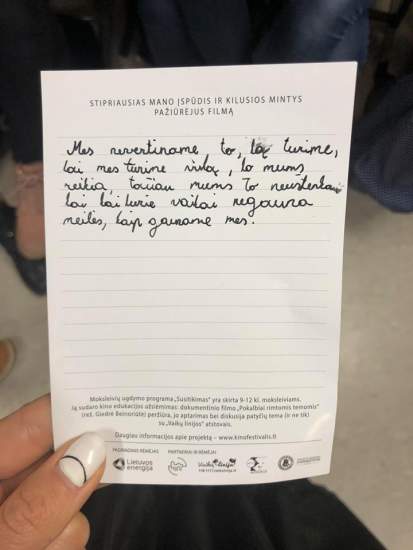 STIPRIAUSIAS MANO ĮSPŪDIS IR KILUSIOS MINTYS
PAŽIŪRĖJUS FILMĄ
Mes nevertiname to, ką turime,
kai mes turime viską, ko mums
reikia, tačiau mums to neužtenka
kai kai kurie vaikai negauna
meilės, kaip gauname mes.
Moksleivių ugdymo programa „Susitikimas" yra skirta 9-12 kl. moksleiviams.
Ją sudaro kino edukacijos užsiėmimas: dokumentinio filmo „Pokalbiai rimtomis temomis"
(rež. Giedrė Beinoriūtė) peržiūra, jo aptarimas bei diskusija patyčių tema (ir ne tik)
su „Vaikų linijos" atstovais.
Daugiau informacijos apie projektą – www.kinofestivalis.lt
PAGRINDINIS RĖMĖJAS
PARTNERIAI IR RĖMĖJAI
Lietuvos
energija
Vaikų linija